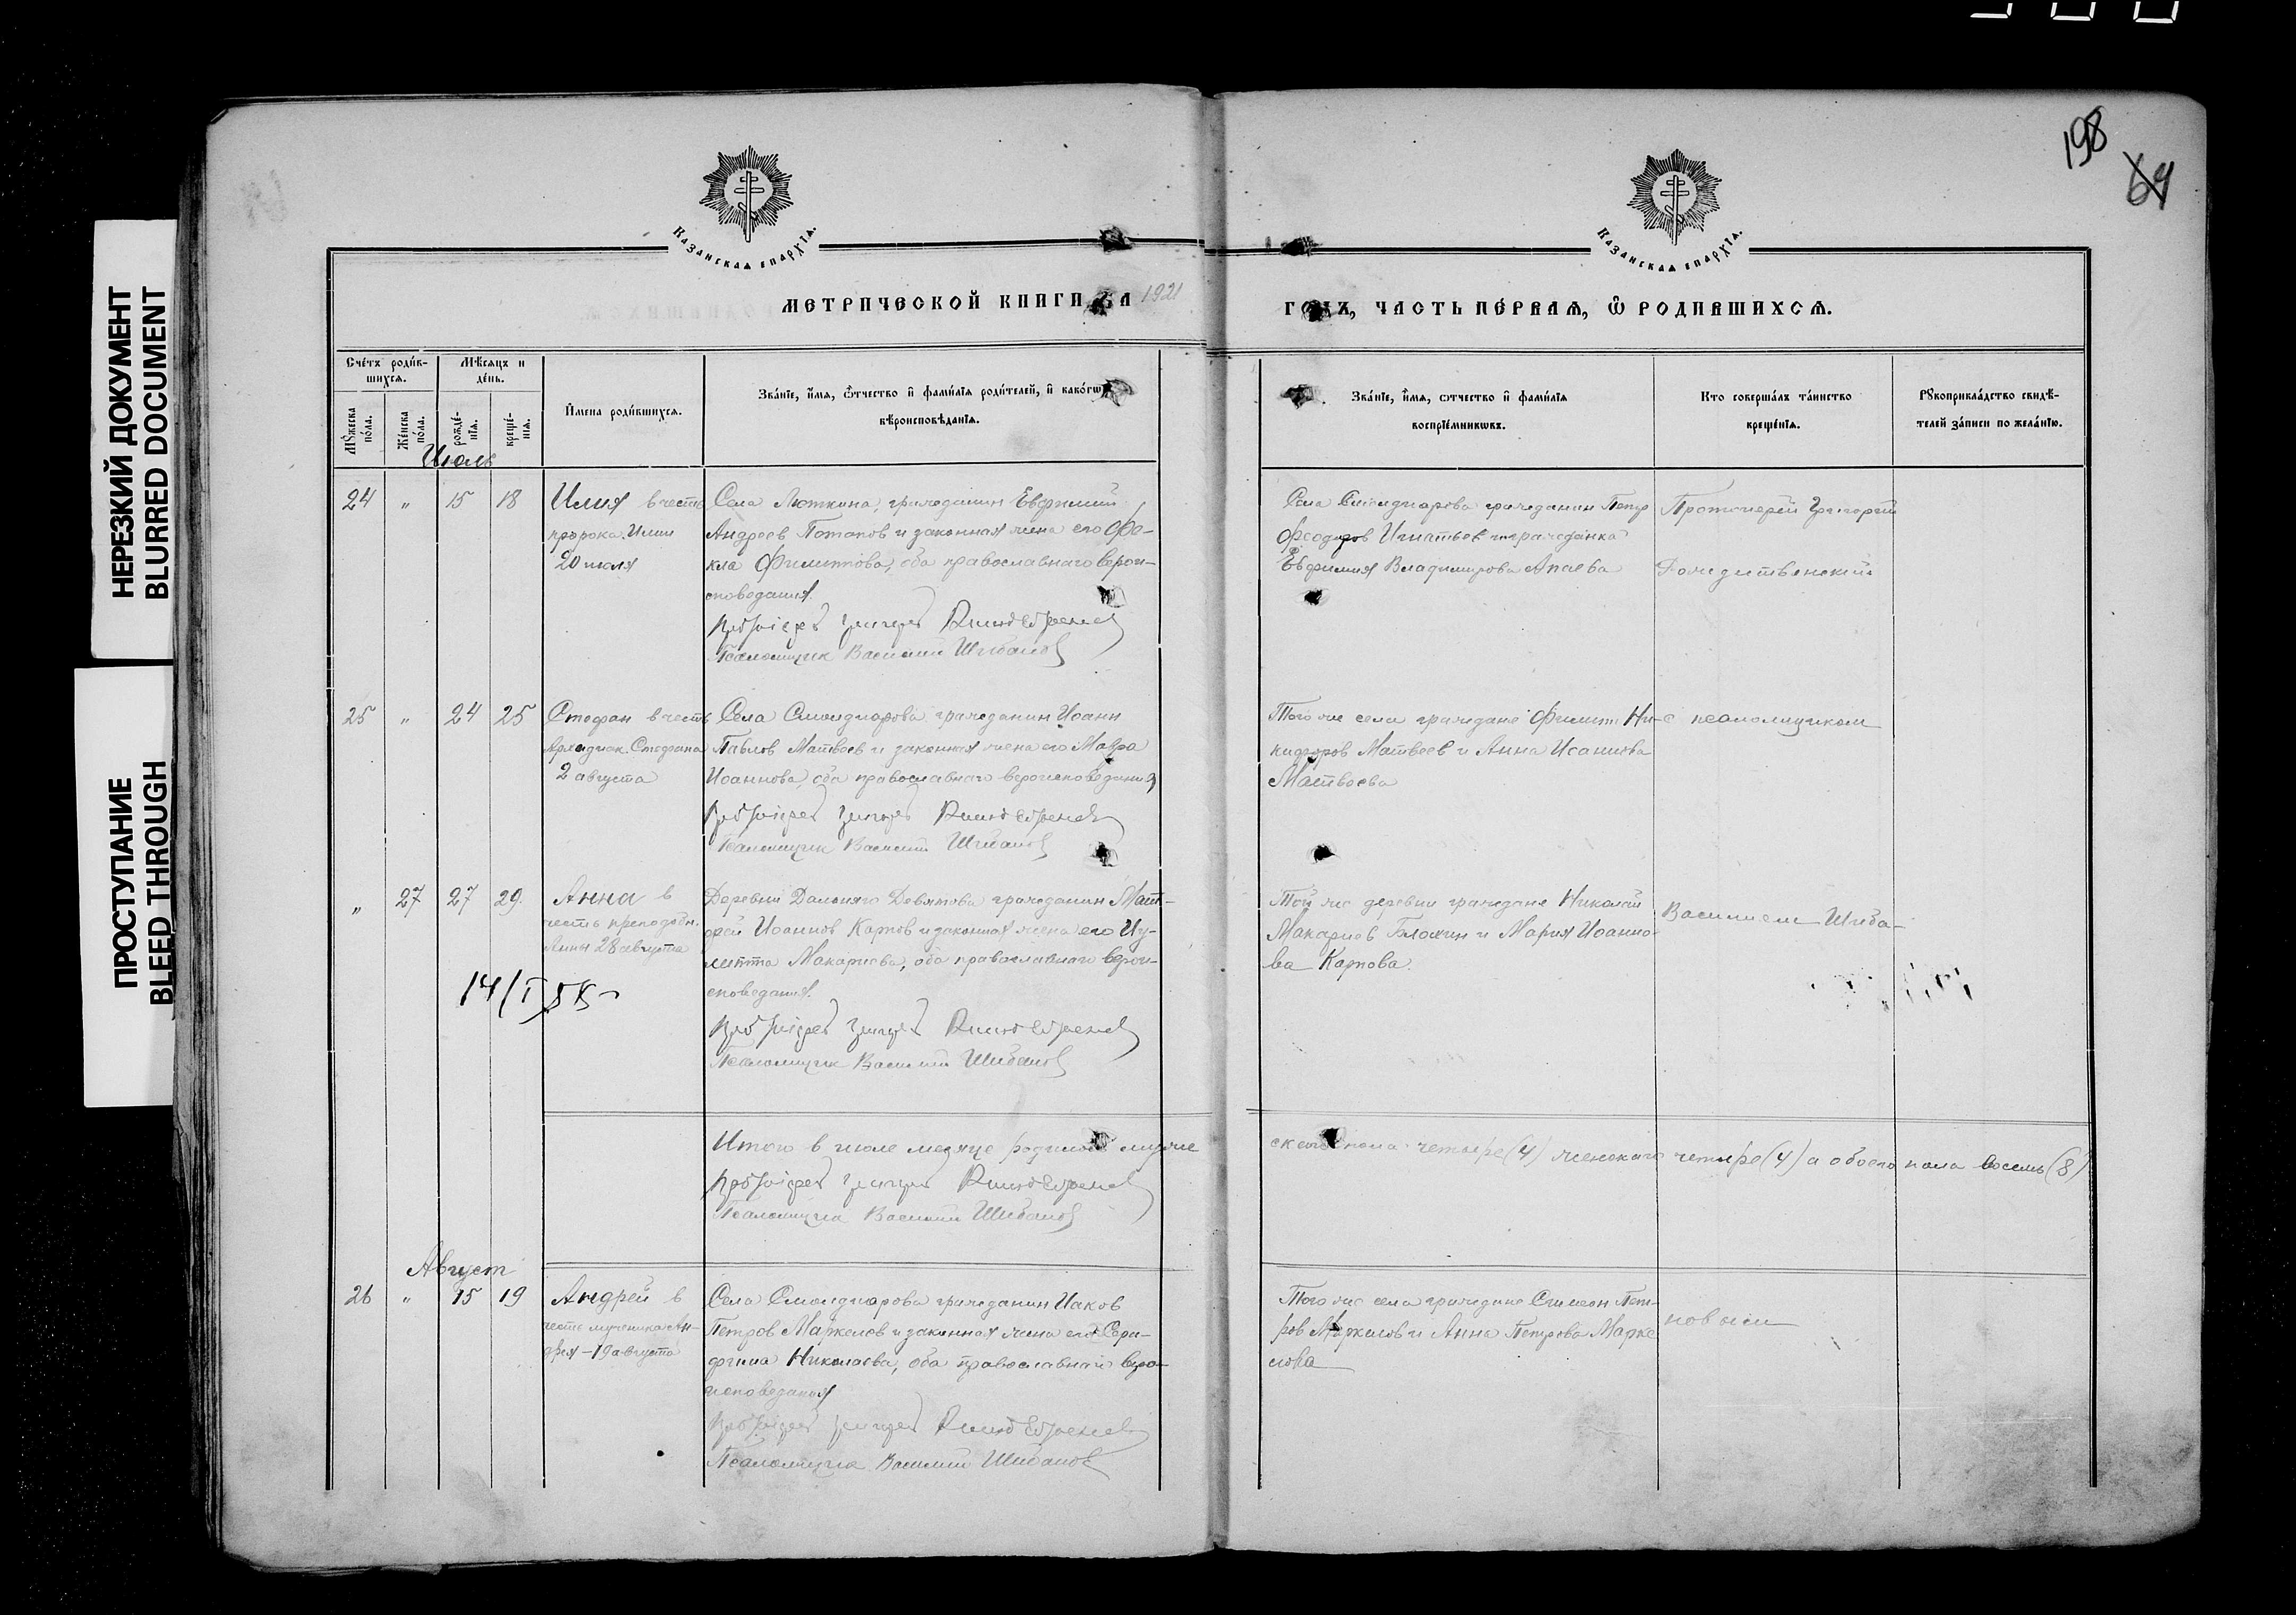 198
64
НЕРЕЗКИЙ ДОКУМЕНТ
BLURRED DOCUMENT
ПРОСТУПАНИЕ
BLEED THROUGH
Казанскаѧ епархїѧ.
Казанскаѧ епархїѧ.
МЕТРИЧЕСКОЙ КНИГИ ЗА 1921
ГОДЪ, ЧАСТЬ ПЕ́РВАѦ, Ѽ РОДИВШИХСѦ.
Сче́тъ роди́в-
шихсѧ.
Мѣ́сѧцъ и
де́нь.
Мꙋ́жеска
по́ла.
Же́нска
по́ла.
рожде́-
нїѧ.
креще́-
нїѧ.
И҆́мена роди́вшихсѧ.
Зва́нїе, и҆́мѧ, ѻ҆́тчество и҆ фами́лїѧ роди́телей, и҆ како́гѡ
вѣроисповѣ́данїѧ.
Зва́нїе, и҆́мѧ, ѻ҆тчество и҆ фами́лїѧ
воспрїе́мникѡвъ.
Кто̀ соверша́лъ та́инство
креще́нїѧ.
Рꙋкоприкла́дство свидѣ́-
телей за́писи по жела́нїю.
Июль
24 " 15 18 Илия в честь
пророка Илии
20 июля
Села Люткина, гражданин Евфимий
Андреев Потапов и законная жена его Фе-
кла Филиппова, оба православнаго верои-
споведания.
Протоиерей Григорий Рождественский
Псаломщик Василий Шибанов
Села гражданин Петр
Феодоров Игнатьев и гражданка
Евфимия Владимирова Апаева
Протоиерей Григорий
Рождественский
25 " 24 25 Стефан в честь
Архидиак. Стефана
2 августа
Села гражданин Иоанн
Павлов Матвеев и законная жена его Мавра
Иоаннова, оба православнаго вероисповедания,
Протоиерей Григорий Рождественский
Псаломщик Василий Шибанов
Того же села граждане Филипп Ни-
кифоров Матвеев и Анна Иоаннова
Матвеева
с псаломщиком
" 27 27 29. Анна в
честь преподобн.
Анны 28 августа
14/I
Деревни Дальняго Девятова гражданин Мат-
фей Иоаннов Карпов и законная жена его Иу-
литта Макариева, оба православнаго верои-
споведания.
Протоиерей Григорий Рождественский
Псаломщик Василий Шибанов
Той же деревни граждане Николай
Макариев Блохин и Мария Иоанно-
ва Карпова.
Василием Шиба-
Итого в июле месяце родилось муже
скаго пола четыре (4) женскаго четыре (4) а обоего пола восемь (8)
Протоиерей Григорий Рождественский
Псаломщик Василий Шибанов
Август
26 " 15 19 Андрей в
честь мученика Ан-
дрея - 19 августа
Села гражданин Иаков
Петров Маркелов и законная жена его Сера-
фима Николаева, оба православнаго веро-
исповедания
Протоиерей Григорий Рождественский
Псаломщик Василий Шибанов
Того же села граждане Симеон Пет-
ров Маркелов и Анна Петрова Марке
лова
новым